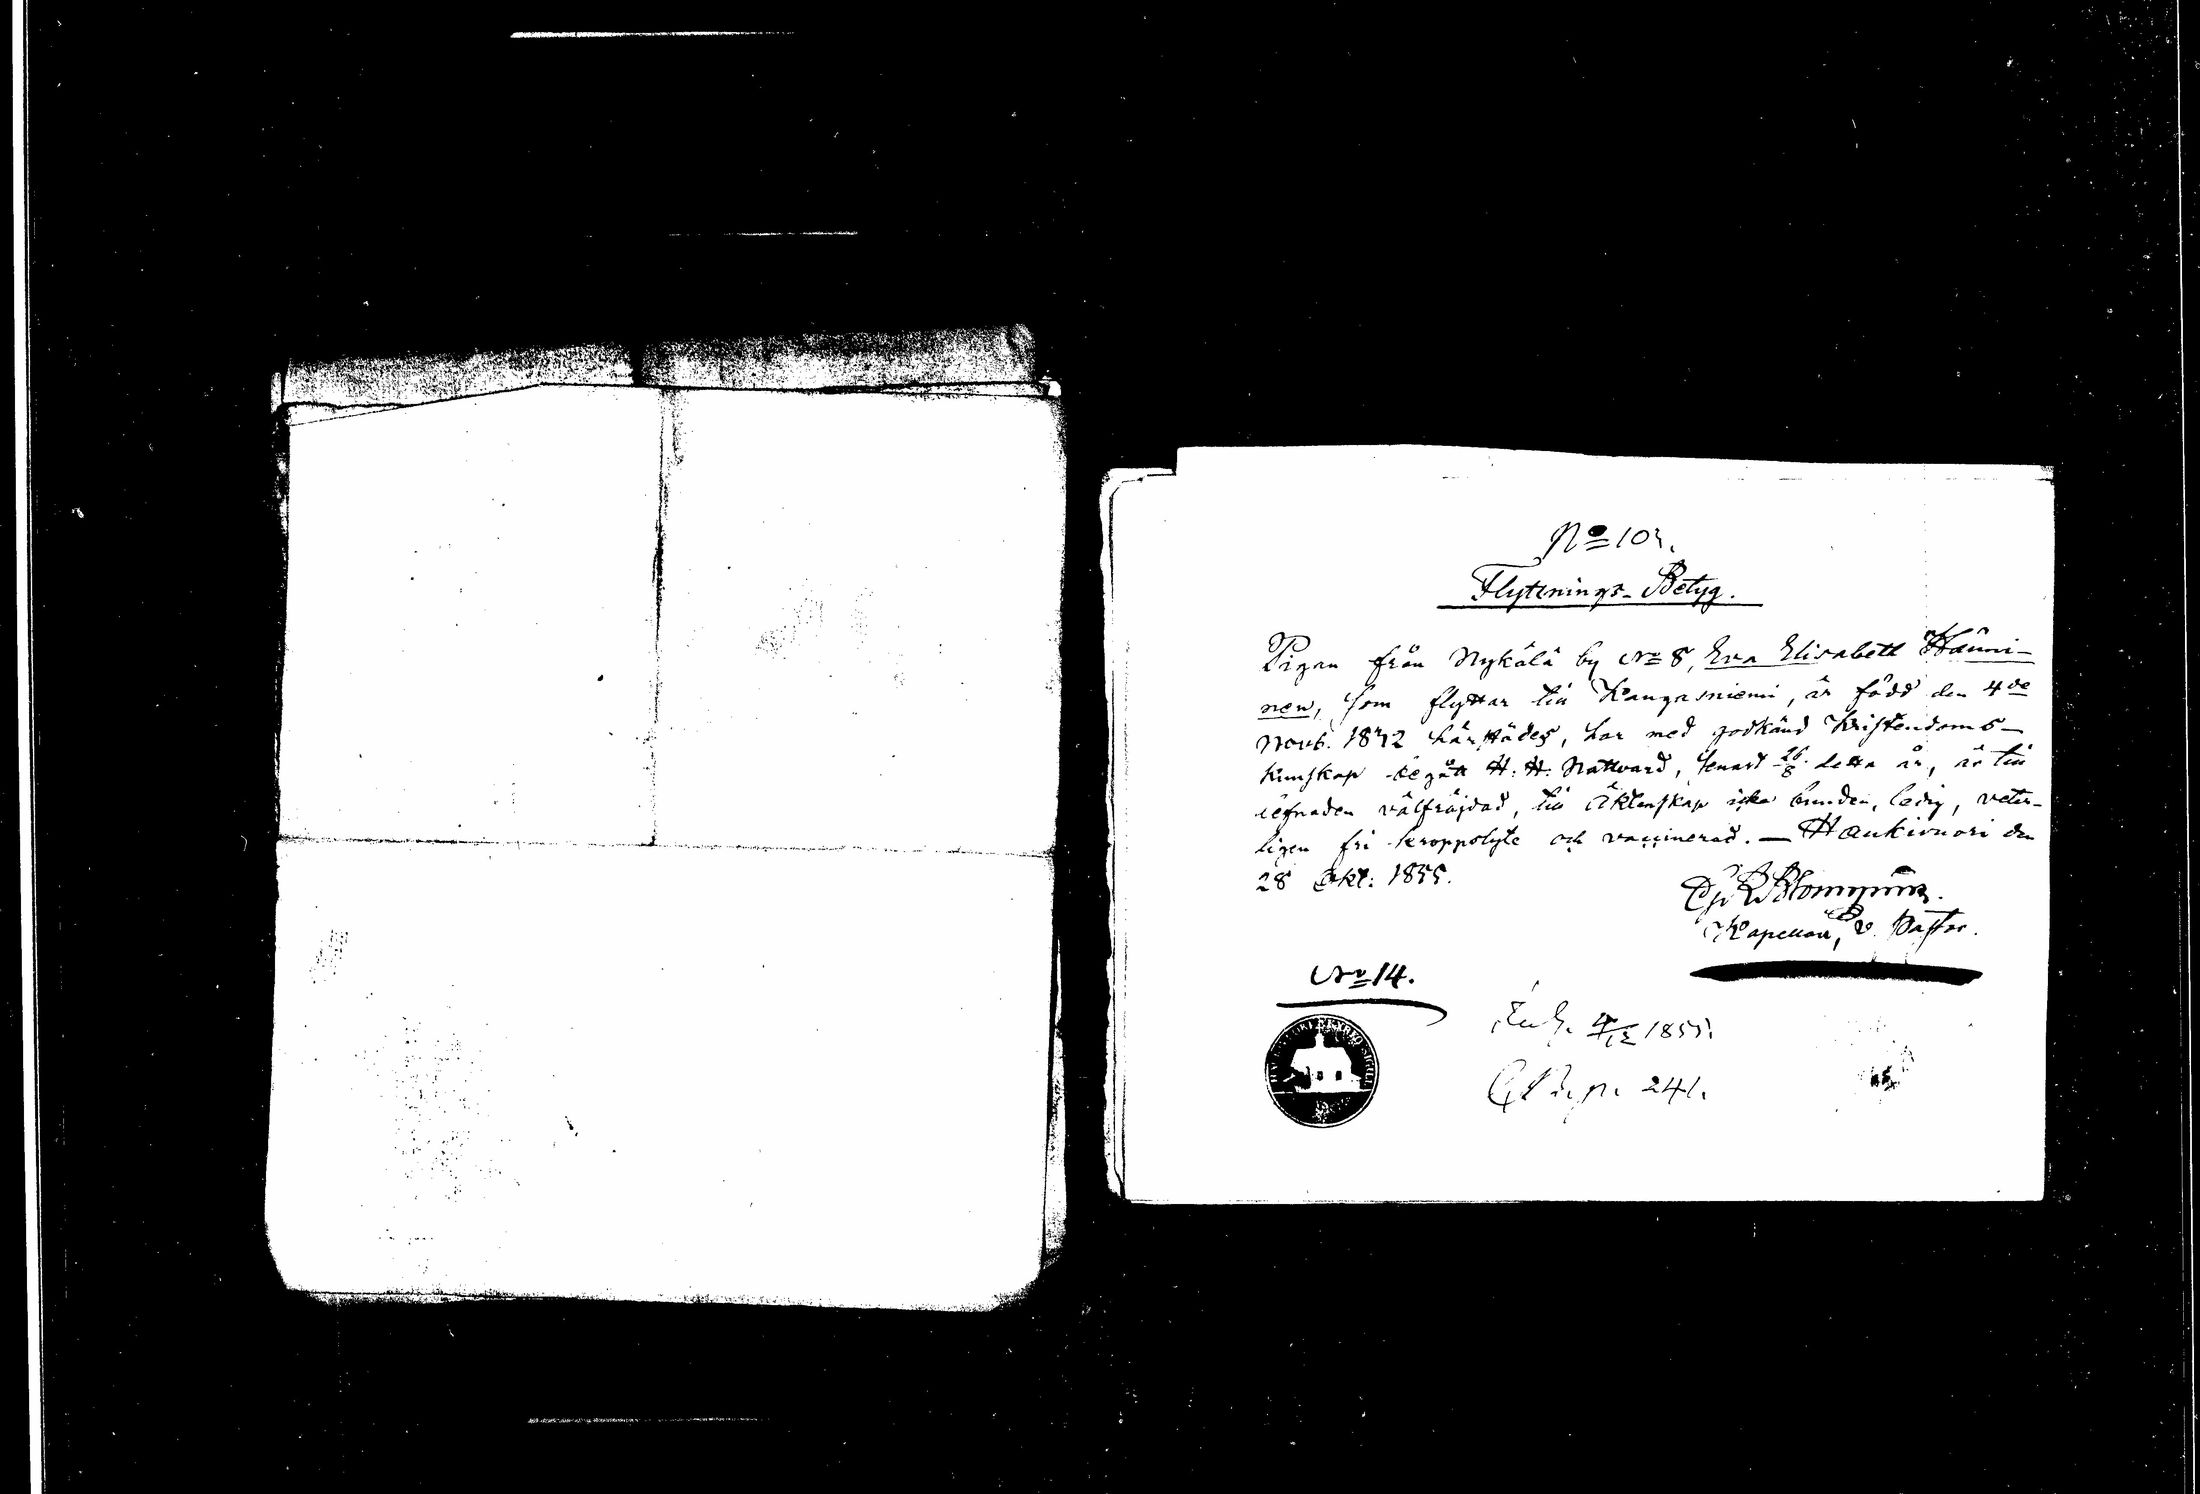 No 103.
Flyttnings-Betyg.
Pigan från Nykälä by No 8, Eva Elisabeth Hänni-
nen, som flyttar till Kangasniemi, är född den 4de
Novb. 1832 härstädes, har med godkänd Kristendoms-
kunskap begått H. H. Nattvard, senast 26/8 detta år, är till
lefnaden välfräjdad, till Äktenskap icke bunden, ledig, veter-
ligen fri kroppslyte och vaccinerad. — Haukivuori den
28 Okt: 1855.
Kapellan, v. Pastor.
No 14.
1855.
p. 241.